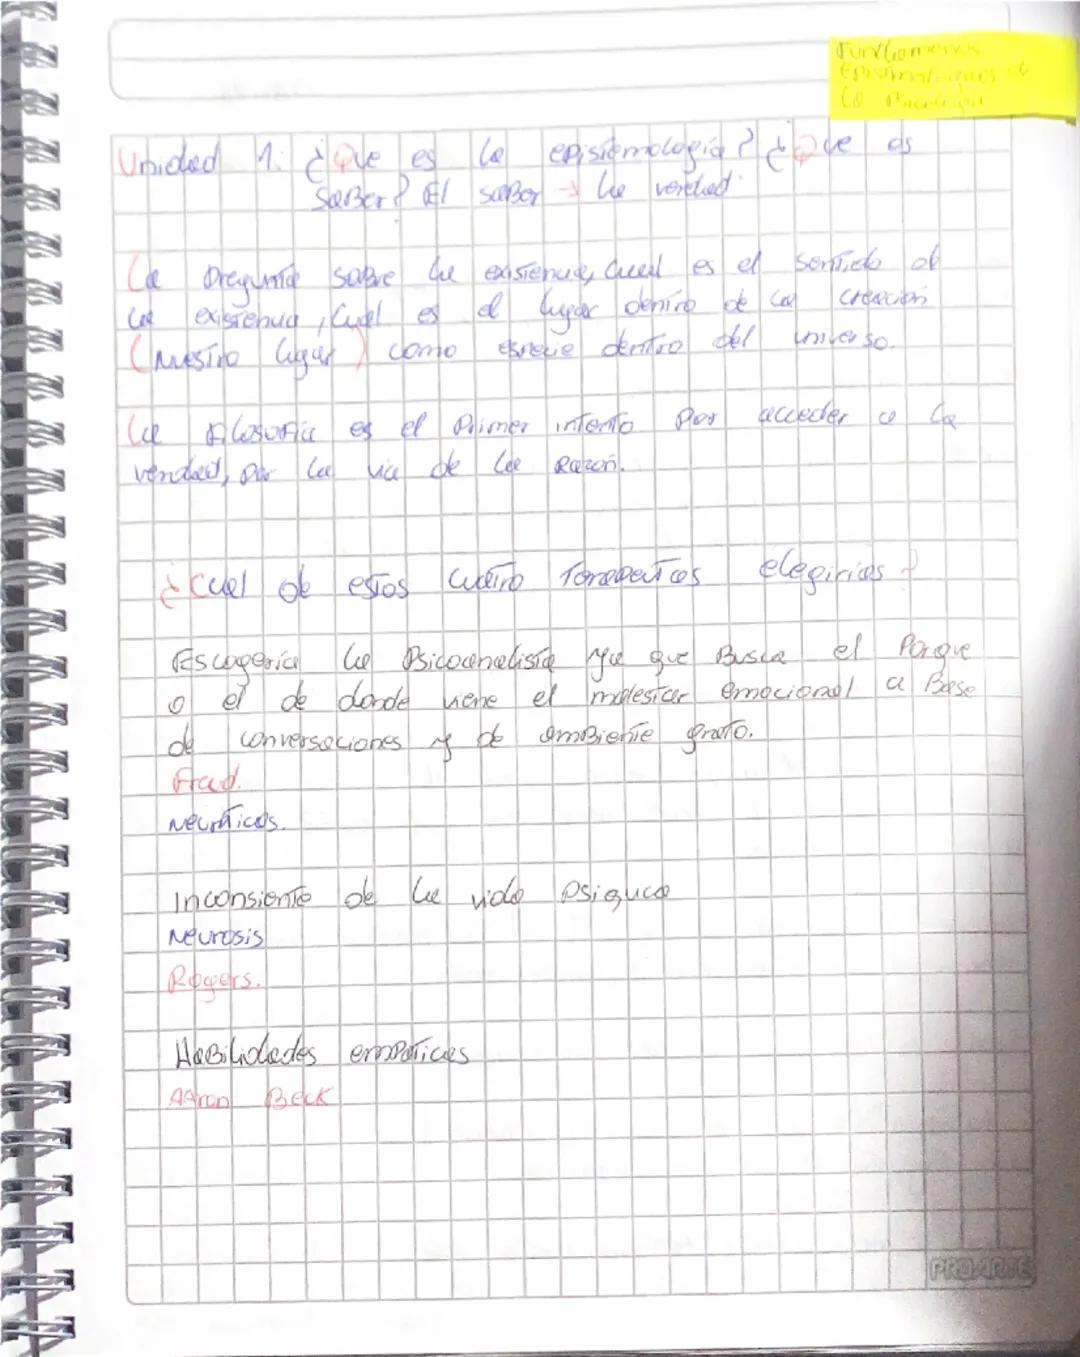 Fundamentos
Epistemologicos de
la Psicologia
Unidad 1: ¿Que es la epistemologia? ¿Que es
saber? El saber → la verdad.
La Pregunta sobre la existencia, Cual es el sentido de
la existencia, Cual es el lugar dentro de la creación
(Nuestro lugar) como especie dentro del universo.
La Filosofia es el Primer intento Por acceder a la
verdad, por la via de la Razón.
¿Cual de estos cuatro Terapeutas elegirias?
Escogeria la Psicoanalista ya que Busca el Porque
o el de donde viene el malestar emocional a Base
de conversaciones y de ambiente grato.
Fraud.
Neuroticos.
Inconsiente de la vida Psiquica
Neurosis
Rogers.
Habilidades empaticas
AAron Beck
PROARTE